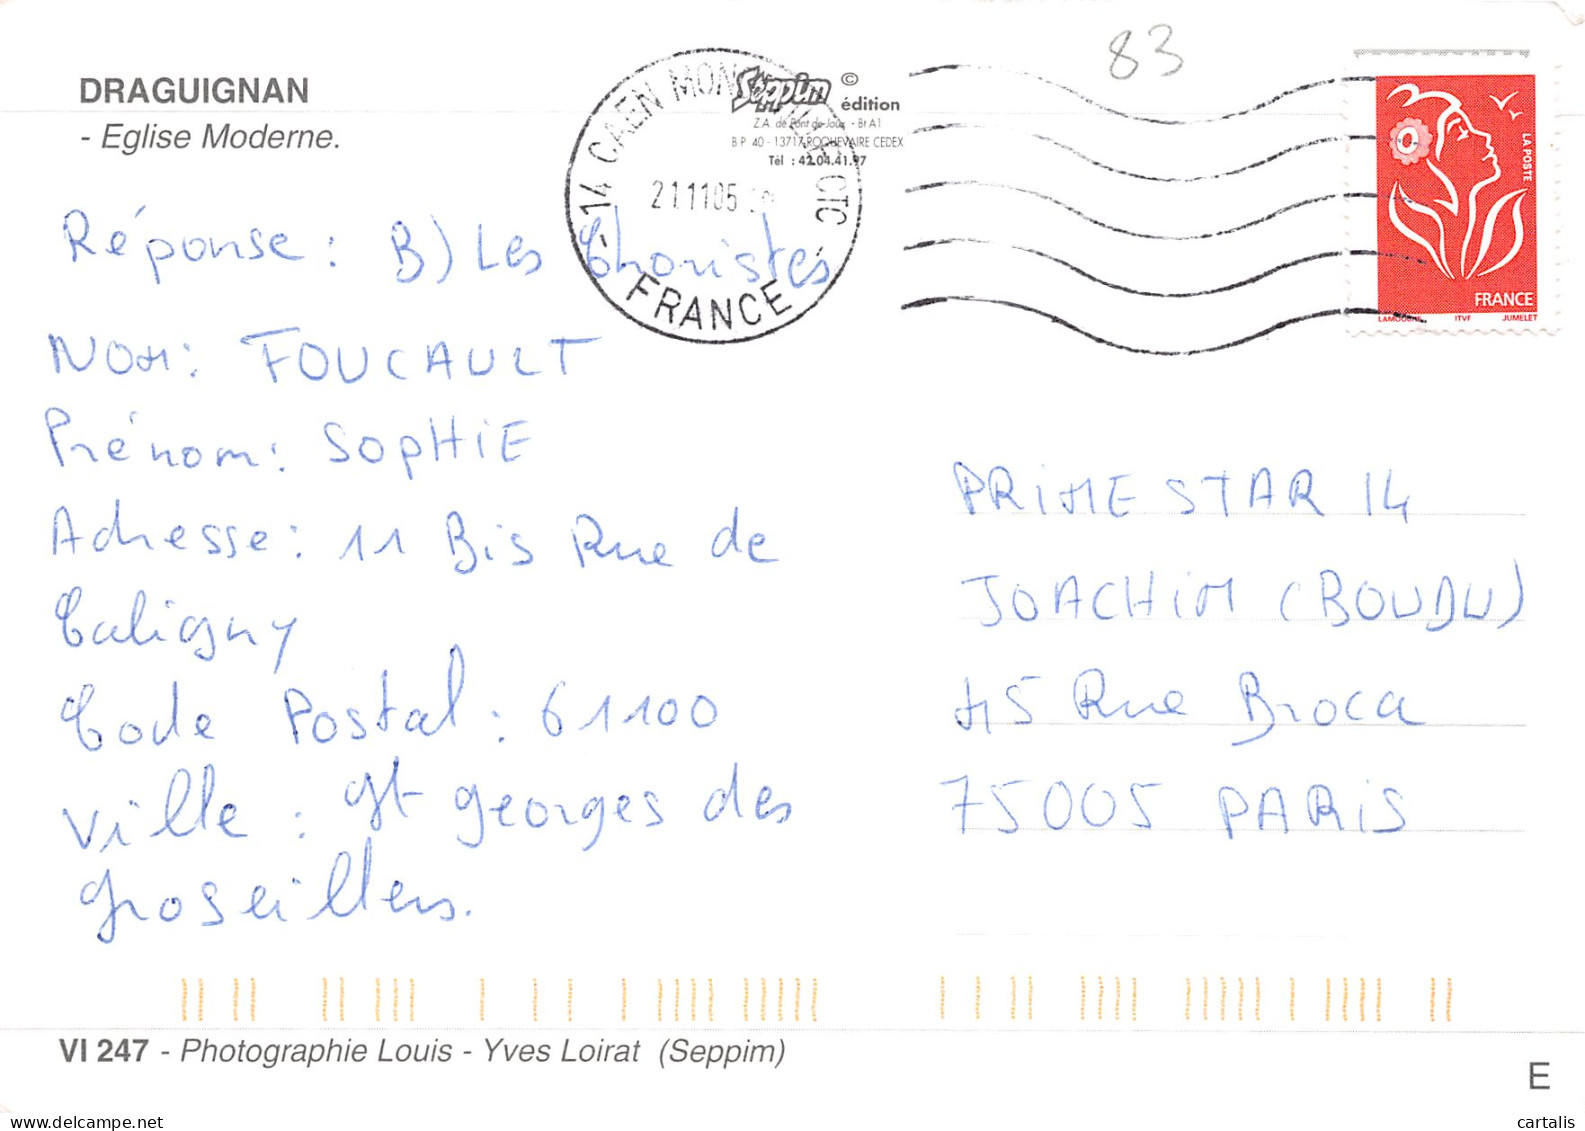 83
DRAGUIGNAN
- Eglise Moderne.
Seppim © édition
Z.A. de Pont de Joux - Bt A1
B.P. 40 - 13717 ROQUEVAIRE CEDEX
Tél : 42.04.41.97
14 CAEN CTC
21 11 05
FRANCE
LA POSTE
FRANCE
LAMOUCHE ITVF JUMELET
Réponse : B) Les Choristes
NOM : FOUCAULT
Prénom : SOPHIE
Adresse : 11 Bis Rue de
Caligny
Code Postal : 61100
Ville : St georges des
groseillers.
PRIME STAR 14
JOACHIM (BOUDU)
45 Rue Broca
75005 PARIS
VI 247 - Photographie Louis - Yves Loirat (Seppim)
E
cartalis
www.delcampe.net